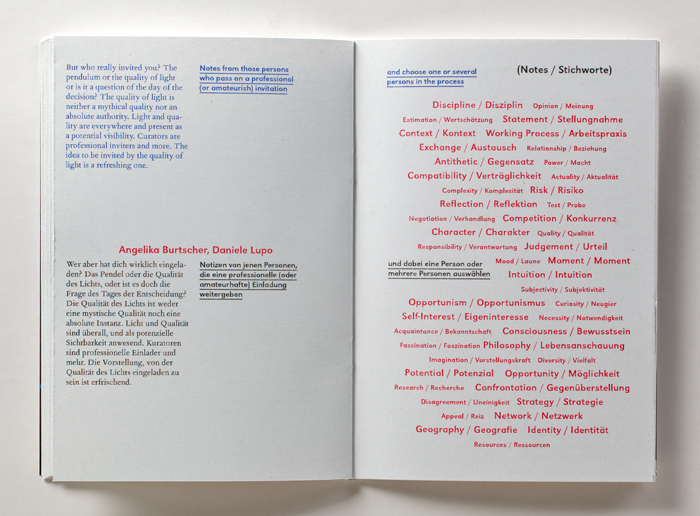 But who really invited you? The
pendulum or the quality of light
or is it a question of the day of the
decision? The quality of light is
neither a mythical quality nor an
absolute authority. Light and qua-
lity are everywhere and present as
a potential visibility. Curators are
professional inviters and more. The
idea to be invited by the quality of
light is a refreshing one.
Notes from those persons
who pass on a professional
(or amateurish) invitation
Angelika Burtscher, Daniele Lupo
Wer aber hat dich wirklich eingela-
den? Das Pendel oder die Qualität
des Lichts, oder ist es doch die
Frage des Tages der Entscheidung?
Die Qualität des Lichts ist weder
eine mystische Qualität noch eine
absolute Instanz. Licht und Qualität
sind überall, und als potenzielle
Sichtbarkeit anwesend. Kuratoren
sind professionelle Einlader und
mehr. Die Vorstellung, von der
Qualität des Lichts eingeladen zu
sein ist erfrischend.
Notizen von jenen Personen,
die eine professionelle (oder
amateurhafte) Einladung
weitergeben
and choose one or several
persons in the process
(Notes / Stichworte)
Discipline / Disziplin Opinion / Meinung
Estimation / Wertschätzung Statement / Stellungnahme
Context / Kontext Working Process / Arbeitspraxis
Exchange / Austausch Relationship / Beziehung
Antithetic / Gegensatz Power / Macht
Compatibility / Verträglichkeit Actuality / Aktualität
Complexity / Komplexität Risk / Risiko
Reflection / Reflektion Test / Probe
Negotiation / Verhandlung Competition / Konkurrenz
Character / Charakter Quality / Qualität
Responsibility / Verantwortung Judgement / Urteil
Mood / Laune Moment / Moment
Intuition / Intuition
Subjectivity / Subjektivität
und dabei eine Person oder
mehrere Personen auswählen
Opportunism / Opportunismus Curiosity / Neugier
Self-Interest / Eigeninteresse Necessity / Notwendigkeit
Acquaintance / Bekanntschaft Consciousness / Bewusstsein
Fascination / Faszination Philosophy / Lebensanschauung
Imagination / Vorstellungskraft Diversity / Vielfalt
Potential / Potenzial Opportunity / Möglichkeit
Research / Recherche Confrontation / Gegenüberstellung
Disagreement / Uneinigkeit Strategy / Strategie
Appeal / Reiz Network / Netzwerk
Geography / Geografie Identity / Identität
Resources / Ressourcen